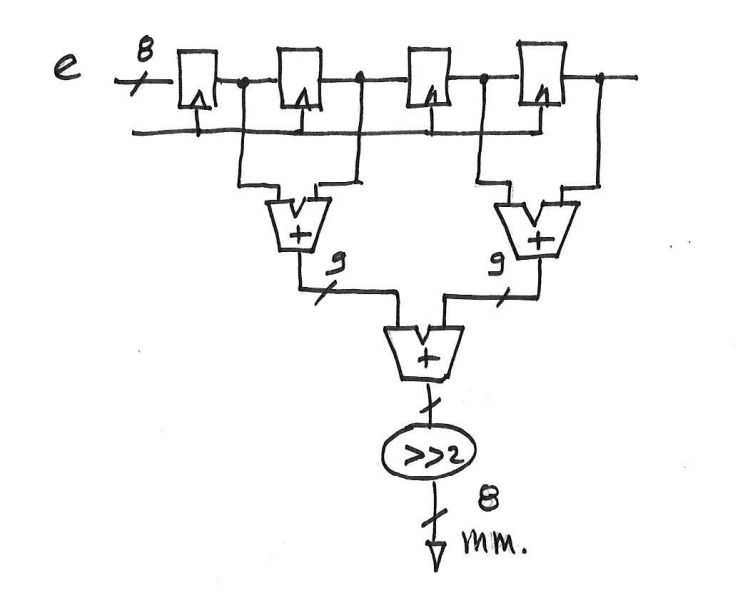 e 8
+ +
9 9
+
>>2
8
mm.